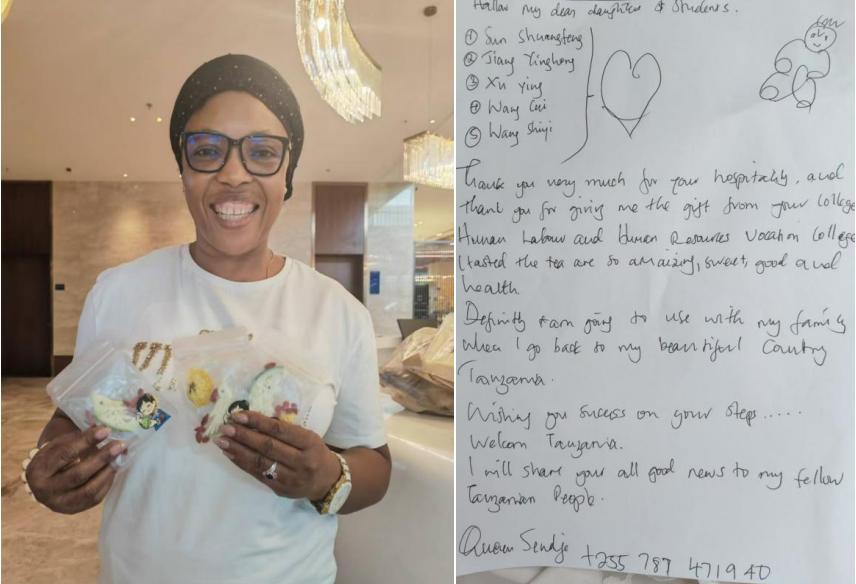 Hallow my dear daughters & Students.
① Sun Shuangfeng
② Jiang Yinghong
③ Xu Ying
④ Wang Cui
⑤ Wang Shiyi
Thank you very much for your hospitality, and
thank you for giving me the gift from your College
Hunan Labour and Human Resources Vocation College
I tasted the tea are so amaizing, sweet, good and
health.
Definitly I am going to use with my family
when I go back to my beautiful Country
Taanzania.
Wishing you success on your steps.....
Welcom Tanzania.
I will share your all good news to my fellow
Tanzanian People.
Queen Sendje +255 787 471940